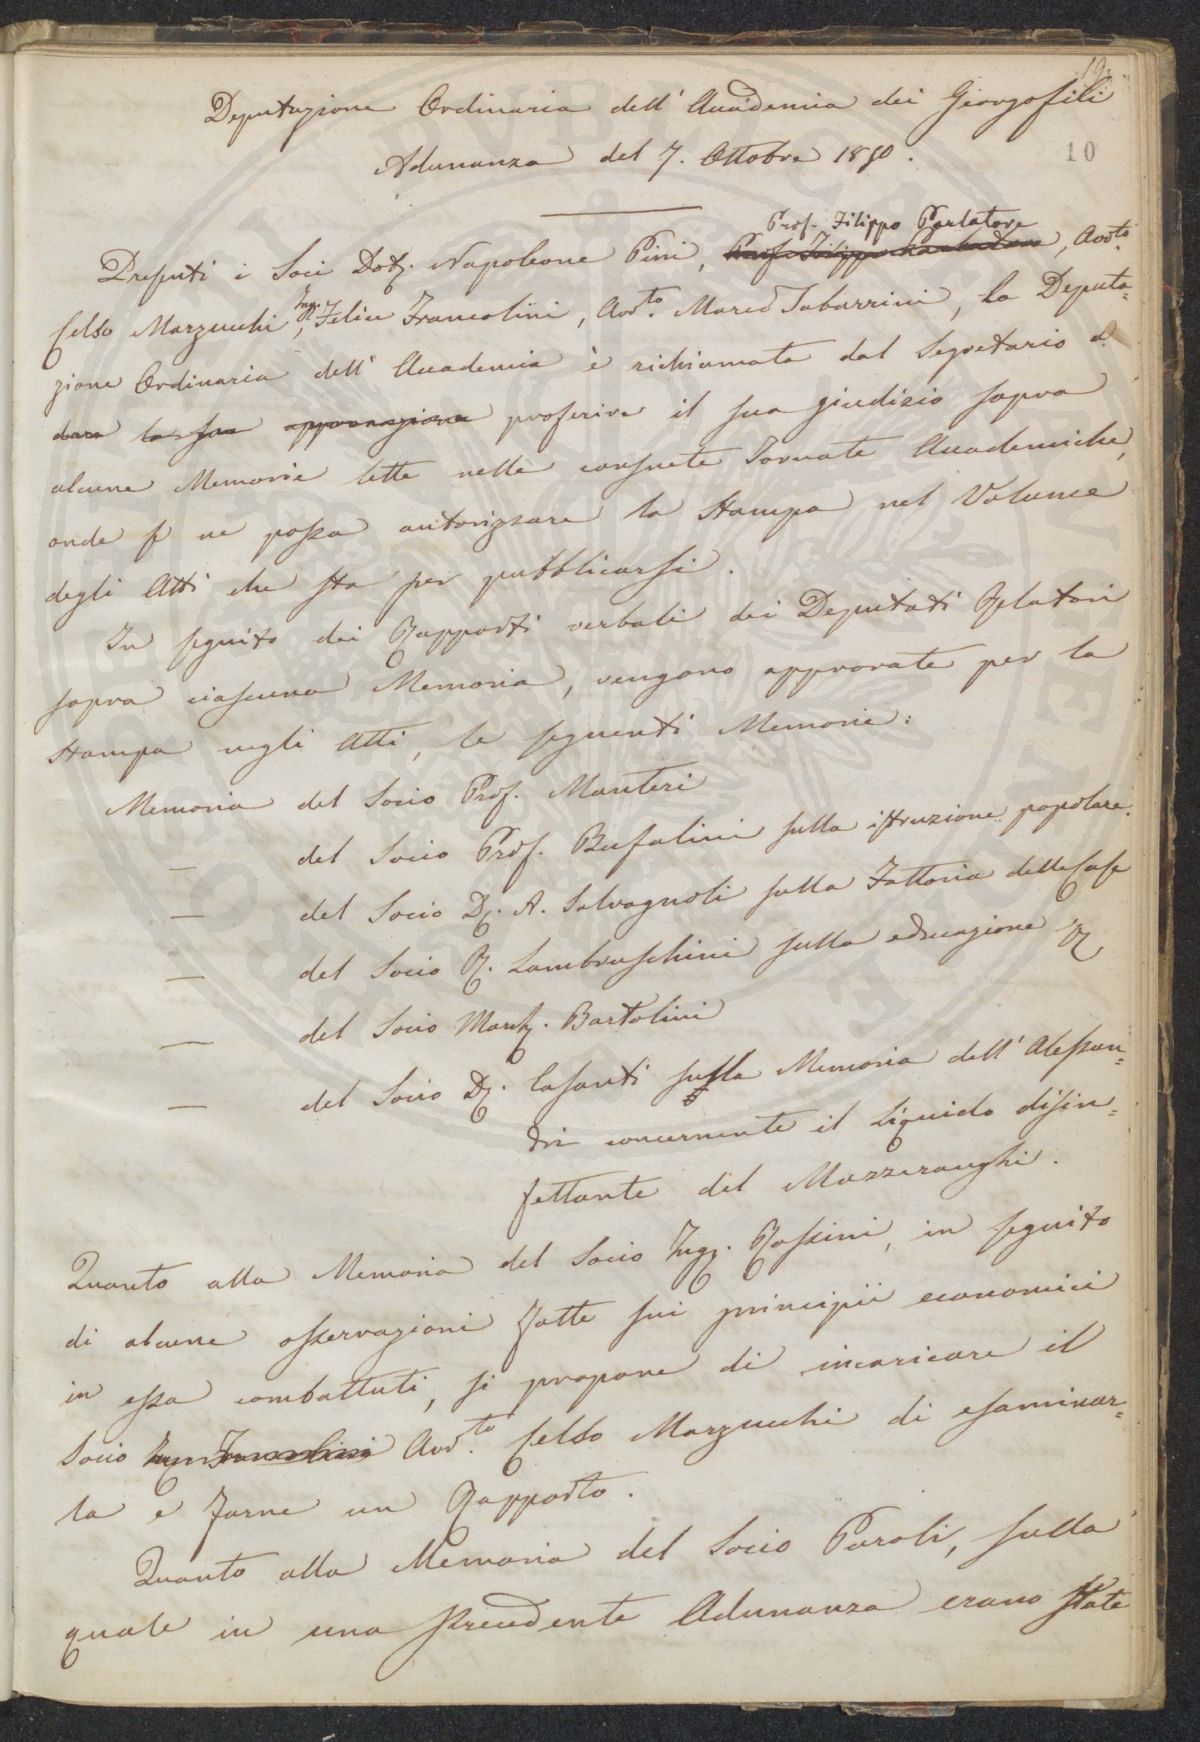 19.
Deputazione Ordinaria dell' Accademia dei Georgofili
Adunanza del 7. Ottobre 1850.
10
Prof. Filippo Parlatore
Presenti i Soci Dott. Napoleone Pini, Prof. Filippo Parlatore, Avv.to
Celso Marzucchi, Ing. Felice Francolini, Avv.to Marco Tabarrini, la Deputa=
zione Ordinaria dell' Accademia è richiamata dal Segretario a
dare la sua approvazione proferire il suo giudizio sopra
alcune Memorie lette nelle consuete Tornate Accademiche,
onde se ne possa autorizzare la Stampa nel Volume
degli Atti che sta per pubblicarsi.
In seguito dei Rapporti verbali dei Deputati Relatori
sopra ciascuna Memoria, vengono approvate per la
Stampa negli Atti, le seguenti Memorie:
Memoria del Socio Prof. Manteri
— del Socio Prof. Bufalini sulla istruzione popolare.
— del Socio D. A. Salvagnoli sulla Fattoria delle Case
— del Socio R. Lambruschini sulla educazione
— del Socio March. Bartolini
— del Socio D. Casanti sulla Memoria dell' Alessan=
dri concernente il Liquido disin=
fettante del Mazzeranghi.
Quanto alla Memoria del Socio Ing. Rossini, in seguito
di alcune osservazioni fatte sui principii economici
in essa combattuti, si propone di incaricare il
Socio Ing. Francolini Avv.to Celso Marzucchi di esaminar=
la e farne un Rapporto.
Quanto alla Memoria del Socio Paroli, sulla
quale in una precedente Adunanza erano state